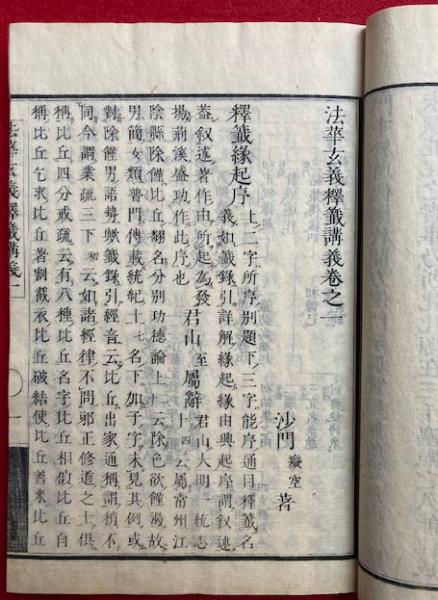 法華玄義釋籤講義卷之一
沙門 癡空 著
釋籤緣起序 上二字所序別題下三字能序通目釋籤名
義如籤錄引詳解緣起緣由興起序謂叙述
蓋叙述著作由所起為發 君山至屬辭 君山大明一統志
揚荊溪盛功作此序也 十四云屬常州江
陰縣除饉比丘翻名分別功德論上云除色欲饉渴故
男簡女類普門傳載統紀十七名下加子字未見其例或
對除饉男語勢歟籤錄引經音云比丘出家通稱謂稍不
同今謂業疏三下初云如諸經律不問邪正修道之士俱
稱比丘四分戒疏云有八種比丘名字比丘相似比丘自
稱比丘乞求比丘著割截衣比丘破結使比丘善來比丘
法華玄義釋籤講義一
一